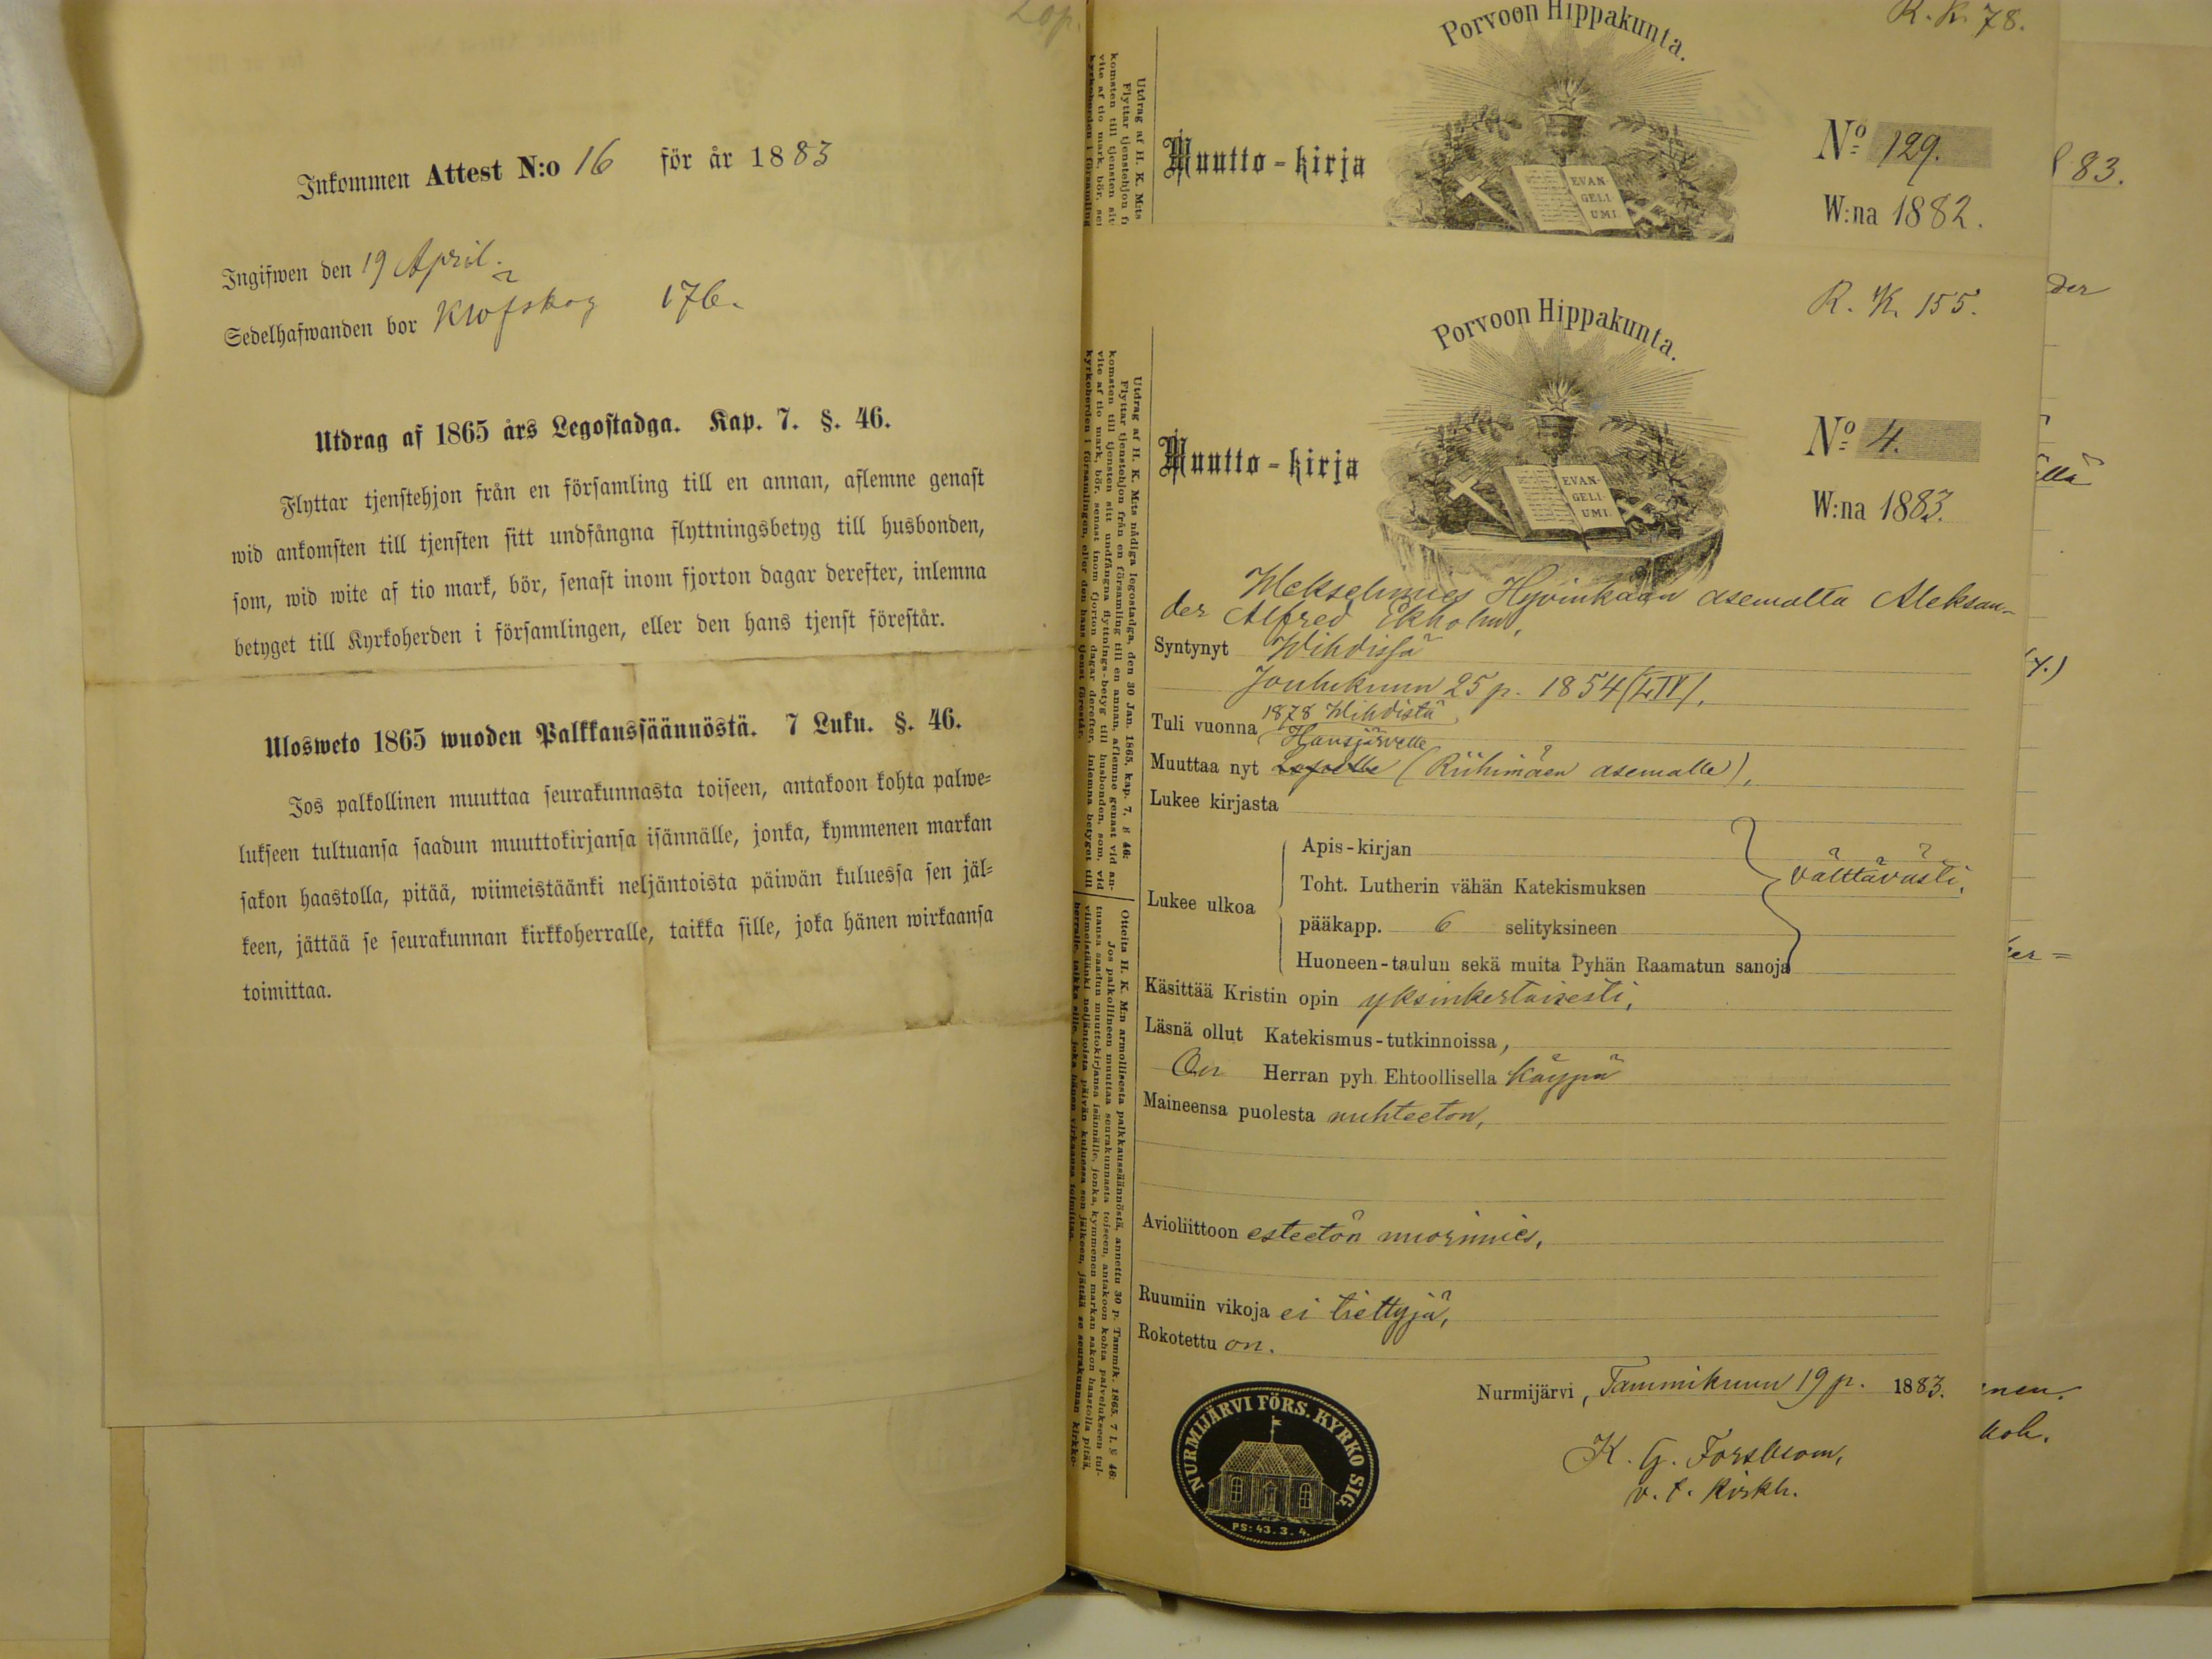 Inkommen Attest N:o 16 för år 1883
Ingifwen den 19 April.
Sedelhafwanden bor Klöfskog 176.
Utdrag af 1865 års Legostadga. Kap. 7. §. 46.
Flyttar tjenstehjon från en församling till en annan, aflemne genast
wid ankomsten till tjensten sitt undfångna flyttningsbetyg till husbonden,
som, wid wite af tio mark, bör, senast inom fjorton dagar derefter, inlemna
betyget till Kyrkoherden i församlingen, eller den hans tjenst förestår.
Ulosweto 1865 wuoden Palkkanssäännöstä. 7 Luku. §. 46.
Jos palkollinen muuttaa seurakunnasta toiseen, antakoon kohta palwe-
lukseen tultuansa saadun muuttokirjansa isännälle, jonka, kymmenen markan
sakon haastolla, pitää, wiimeistäänki neljäntoista päiwän kuluessa sen jäl-
keen, jättää se seurakunnan kirkkoherralle, taikka sille, joka hänen wirkaansa
toimittaa.
R. K. 78.
Porvoon Hippakunta.
Muutto-kirja
EVAN-
GELI-
UMI.
No 129.
W:na 1882.
Utdrag af H. K. M:ts
Flyttar tjenstehjon fr
komsten till tjensten sit
vite af tio mark, bör, sen
kyrkoherden i församling
83.
der
R. K. 155.
Porvoon Hippakunta.
Muutto-kirja
EVAN-
GELI-
UMI.
No 4.
W:na 1883.
Wekselimies Hyvinkään asemalta Aleksan-
der Alfred Ekholm,
Syntynyt Wihdissä
Joulukuun 25 p. 1854 (LIV).
Tuli vuonna 1878 Wihdistä
Hausjärvelle
Muuttaa nyt (Riihimäen asemalle),
Lukee kirjasta
Lukee ulkoa
Apis-kirjan
Toht. Lutherin vähän Katekismuksen
pääkapp. 6 selityksineen
Huoneen-taulun sekä muita Pyhän Raamatun sanoja
välttävästi,
Käsittää Kristin opin yksinkertaisesti,
Läsnä ollut Katekismus-tutkinnoissa,
On Herran pyh. Ehtoollisella käypä
Maineensa puolesta nuhteeton,
Avioliittoon esteetön nuorimies,
Ruumiin vikoja ei tiettyjä,
Rokotettu on.
Nurmijärvi, Tammikuun 19 p. 1883.
K. G. Forsblom,
v. t. kirkh.
NURMIJÄRVI FÖRS. KYRKO SIG.
PS: 43. 3. 4.
Utdrag af H. K. M:ts nådiga legostadga, den 30 Jan. 1865, kap. 7, § 46:
Flyttar tjenstehjon från en församling till en annan, aflemne genast vid an-
komsten till tjensten sitt undfångna flyttnings-betyg till husbonden, som, vid
vite af tio mark, bör, senast inom fjorton dagar derefter, inlemna betyget till
kyrkoherden i församlingen, eller den hans tjenst förestår.
Otteita H. K. M:n armollisesta palkkaussäännöstä, annettu 30 p. Tammik. 1865. 7 l. § 46:
Jos palkollineen muuttaa seurakunnasta toiseen, antakoon kohta palvelukseen tul-
tuansa saadun muuttokirjansa isännälle, jonka, kymmenen markan sakon haastolla pitää,
viimeistäänki neljäntoista päivän kuluessa sen jälkeen, jättää se seurakunnan kirkko-
herralle, taikka sille, joka hänen virkaansa toimittaa.